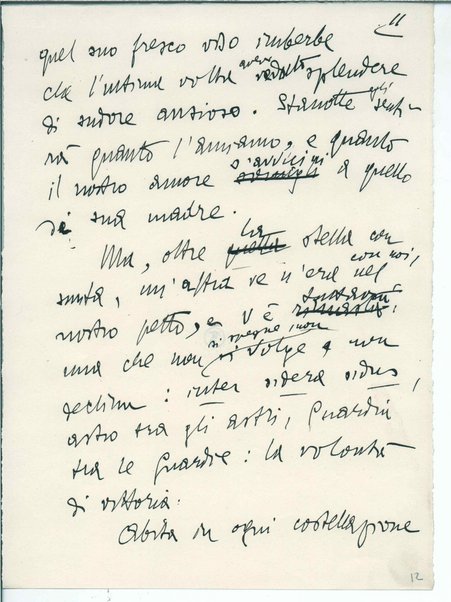 11
quel suo fresco viso imberbe
che l'ultima volta aveva veduto splendere
di sudore ansioso. Stanotte egli senti-
rà quanto l'amiamo, e quanto
il nostro amore s'avvicini somigli a quello
di sua madre.
Ma, oltre la quella stella con
sunta, un'altra ve n'era con noi, nel
nostro petto, e v'è tuttavia rimasta,
una che non si spegne, non si volge e non
declina: inter sidera sidus,
astro tra gli astri, Guardia
tra le Guardie: la volontà
di vittoria.
Abita in ogni costellazione
12